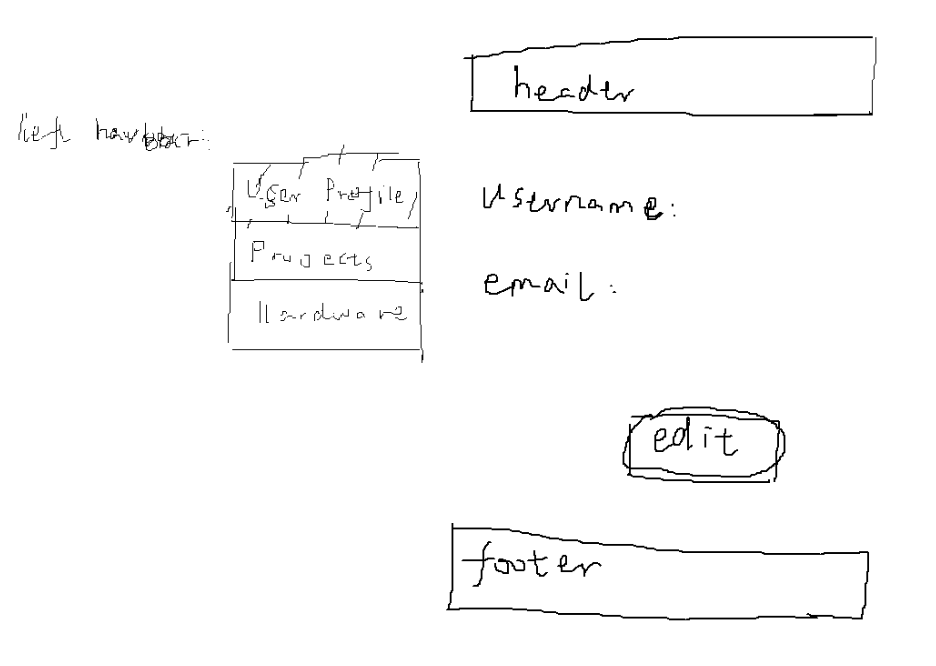 header
left navbar:
User Profile
Projects
Hardware
username:
email:
edit
footer